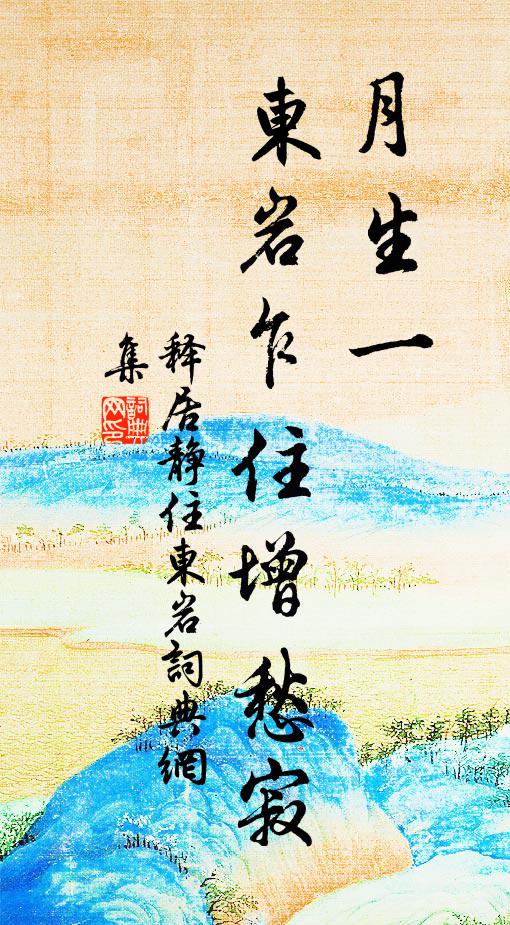 月生一
東岩乍住增愁寂
释居静住東岩詞典網
集
詞典網印